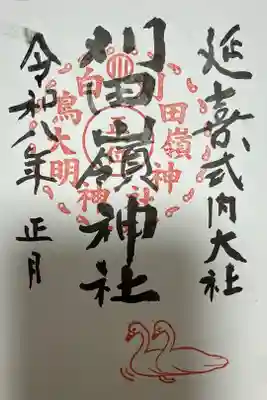 延喜式内大社
刈田嶺神社
令和八年
正月
刈田嶺神社
白鳥大明神
正一位